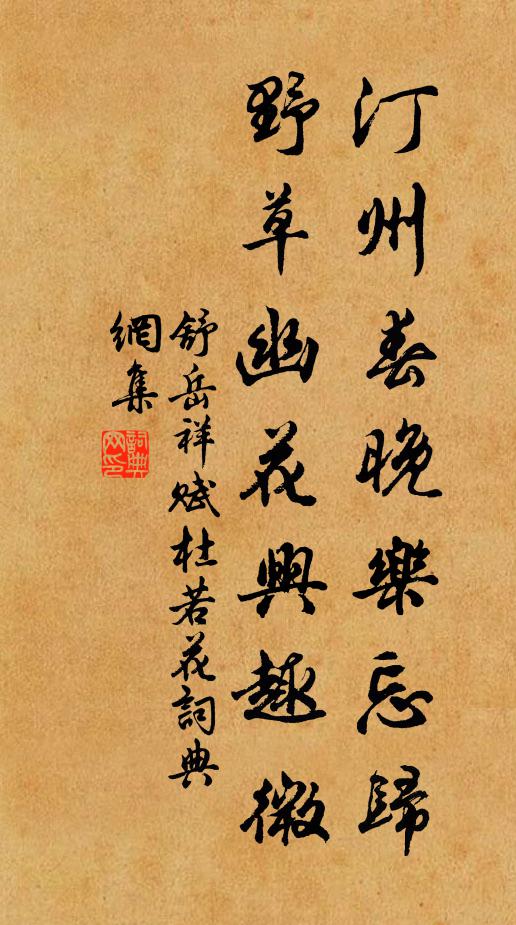 汀州春晚樂忘歸
野草幽花興趣微
舒岳祥賦杜若花詞典
網集
詞典
网印